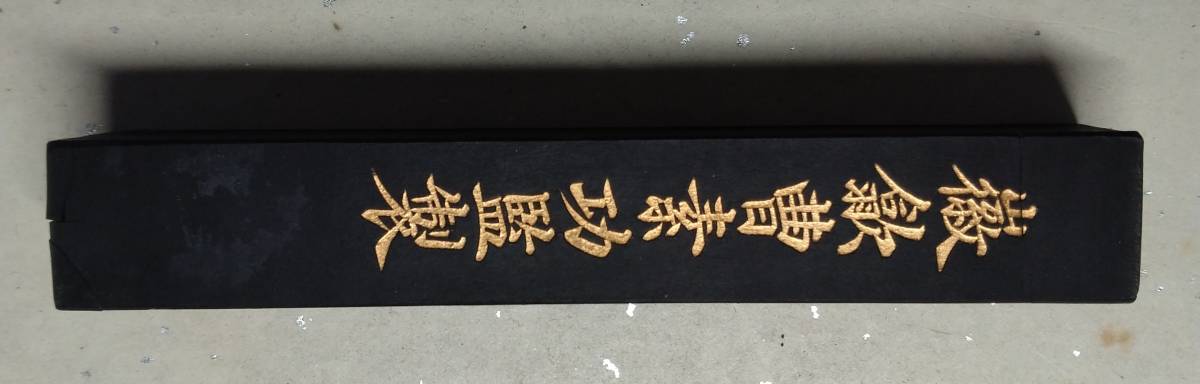 徽歙曹素功監製